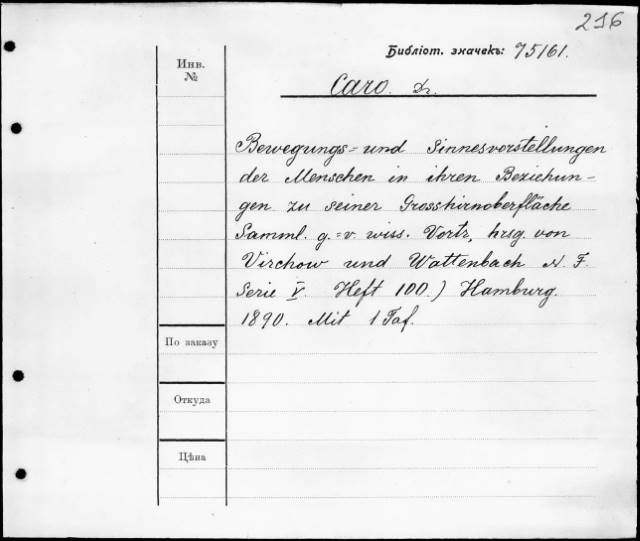 216
Библіот. значекъ: 75161.
Инв.
№
Caro. Dr.
Bewegungs= und Sinnesvorstellungen
der Menschen in ihren Beziehun-
gen zu seiner Grosshirnoberfläche
Samml. g.=v. wiss. Vortr, hrsg. von
Virchow und Wattenbach N. F.
Serie V. Heft 100.) Hamburg.
1890. Mit 1 Taf.
По заказу
Откуда
Цѣна